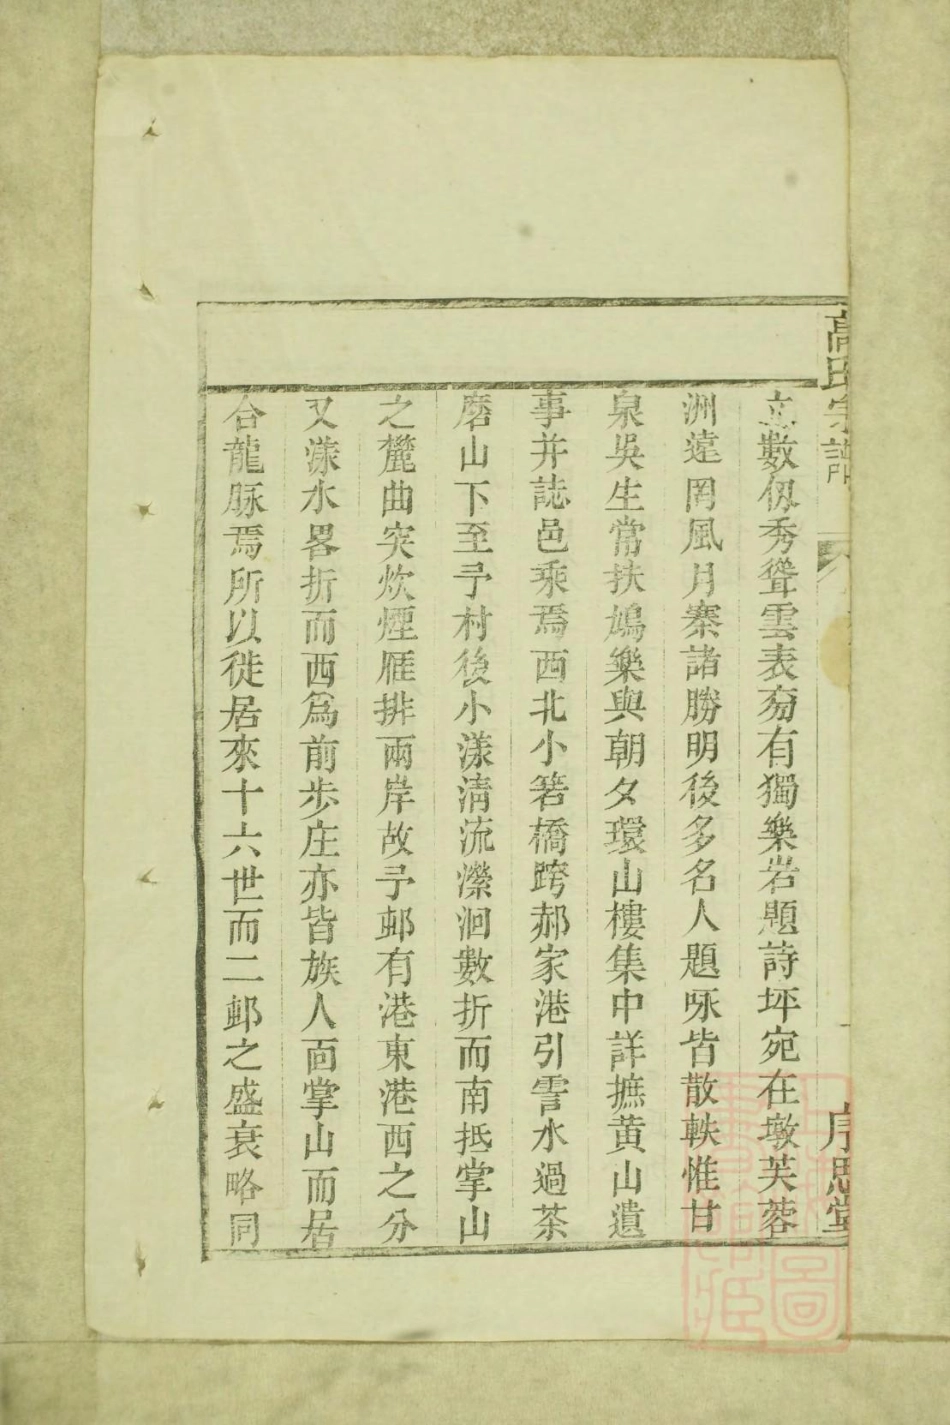 高氏宗譜
序思堂
立數仭秀聳雲表旁有獨樂岩題詩坪宛在墩芙蓉
洲遠罔風月寨諸勝明後多名人題咏皆散軼惟甘
泉吳生常扶鳩樂與朝夕環山樓集中詳摭黄山遺
事并誌邑乘焉西北小箬橋跨郝家港引霅水過茶
磨山下至予村後小漾清流瀠洄數折而南抵掌山
之麓曲突炊煙雁排兩岸故予邨有港東港西之分
又漾水畧折而西爲前步庄亦皆族人面掌山而居
合龍脉焉所以徙居來十六世而二邨之盛衰略同